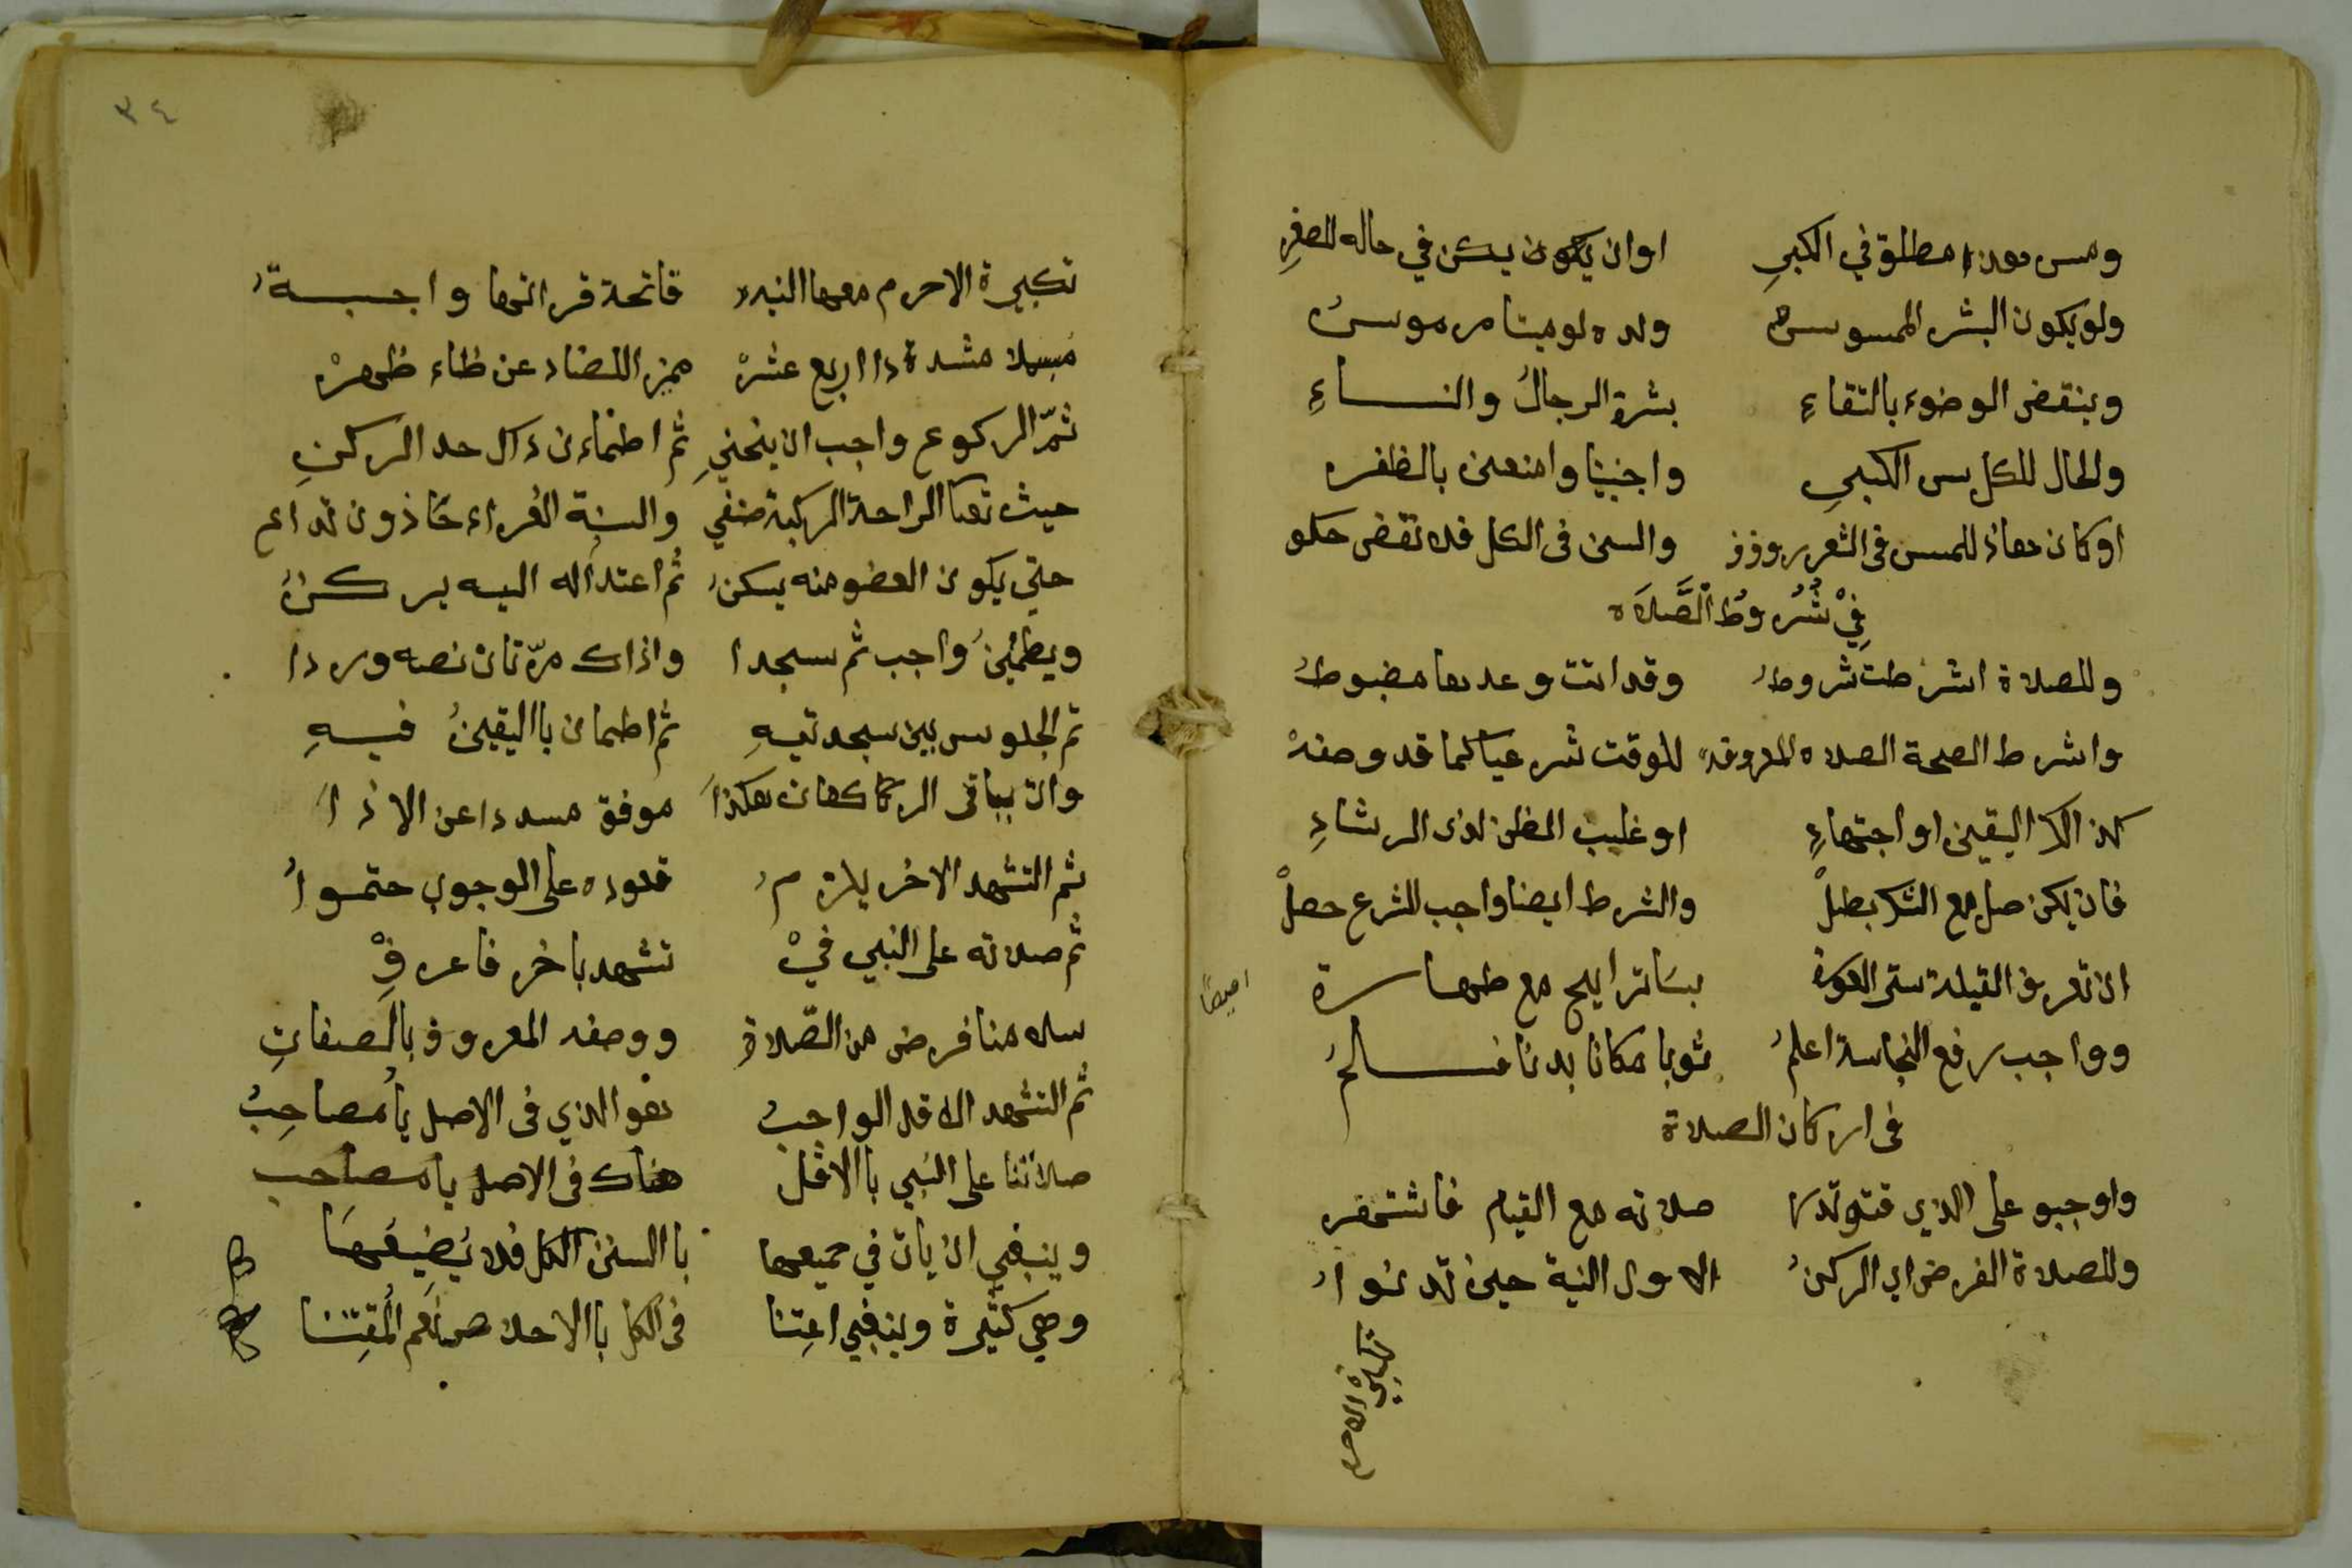 ومس مطلق في الكبيرِ اوان يكون يكن في حاله للصغرِ
ولو يكون البشر الممسوس ولده لو ميتا مرموسُ
وينقض الوضوء بالتقاءِ بشرة الرجالُ والنساءِ
والحال للكل سن الكبيرِ واجنبيا وامنعن بالظفره
اوكان هذا للمس في الشعر والسن في الكل فلا نقض حكو
فِيْ شُرُوطُ الصَّلاَه
وللصلاة اشرطت شروطُ وقد اتت وعدها مضبوطُ
واشرط الصحة الصلاه المعروفه للوقت شرعيا كما قد وصفهْ
كذا اليقين او اجتهادِ او غليب الظن لذى الرشادِ
فان يكن صل مع الشك بطلْ والشرط ايضا واجب للشرع حصلْ
ان تعرف القبلة ستر العورة بساتر ابيح مع طهارة
ايضًا
وواجب رفع النجاسة اعلمُ ثوبا مكانا بدنا
في اركان الصلاة
واوجبو على الذي صلاته مع القيام
وللصلاة الفرض اي الركنُ الاول النية حين
تكبيرة الاحرم
٣٤
تكبيرة الاحرم معها النيه فاتحة قرانها واجبةُ
مبسملا مشددة دا اربع عشرْ ميز الضاد عن ظاء ظهرْ
ثمّ الركوع واجب ان ينحنيِ ثم اطماءن ذاك حد الركنِ
حيث الراحة الركبة والسنة الغراء
حتي يكون العضو منه يسكنُ ثم اعتداله اليه يركنُ
ويطمئينُ واجب ثم سجدا واذاك مرّتان نصه وردا
تم الجلوس بين سجدتيهِ ثم اطمان باليقينُ فيهِ
وان بباقي الركعات هكذاَ موفق مسددا عن الاذاَ
ثم التشهد الاخر يلزمُ قعوده على الوجوب حتمواُ
ثم صلاته على النبي فيْ تشهد باخر فاعرفِْ
سلامنا فرض من الصّلاةِ ووصفه المعروف بالصفاتِ
ثم التشهد الاقل الواجبُ هو الذي في الاصل يا مُصاحِبُ
صلاتنا على النبي بالاقل هناك في الاصل يا مصاحب
وينبغي ان يات في جميعها بالسنن الكل فلا يُضِيعَها
وهي كثيرة وينبغي اعتنا في الكل بالاخلاص نعم المُقتنا